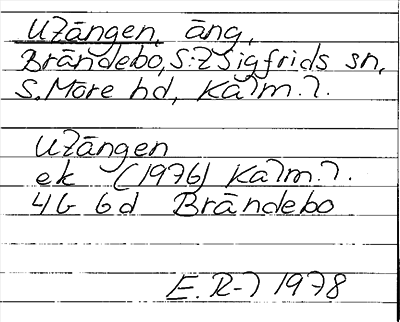 Ulängen, äng,
Brändebo, S:t Sigfrids sn,
S. Möre hd, Kalm. l.
Ulängen
ek (1976) Kalm. l.
4G 6d Brändebo
E. R-l 1978